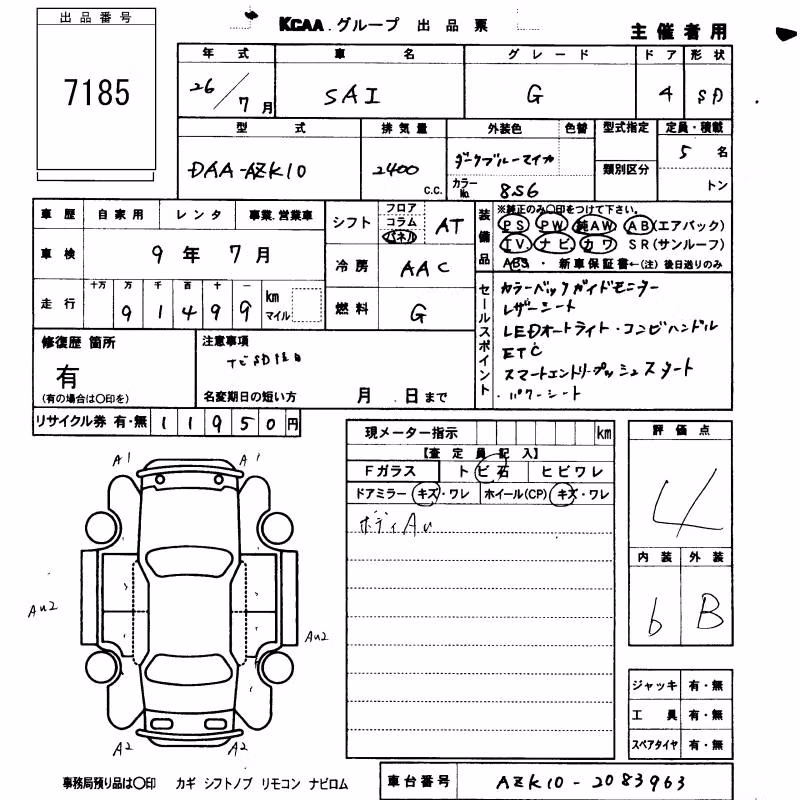 出品番号
7185
KCAA.グループ 出品票
主催者用
年式 車名 グレード ドア 形状
26/7月 SAI G 4 SD
型式 排気量 外装色 色替 型式指定 定員・積載
DAA-AZK10 2400 C.C. ダークブルーマイカ 5名
カラーNo. 856 類別区分 トン
車歴 自家用 レンタ 事業.営業車
車検 9年7月
走行 十万 万 千 百 十 一
9 1 4 9 9 km マイル
シフト フロア コラム パネル AT
冷房 AAC
燃料 G
装備品
※純正のみ〇印をつけて下さい。
PS PW 純AW AB(エアバック)
TV ナビ カワ SR(サンルーフ)
ABS・新車保証書←(注)後日送りのみ
セールスポイント
カラーバックガイドモニター
レザーシート
LEDオートライト・コンビハンドル
ETC
スマートエントリープッシュスタート
パワーシート
修復歴 箇所
有
(有の場合は〇印を)
注意事項
名変期日の短い方 月 日まで
リサイクル券 有・無 11950円
現メーター指示 km
【査定員記入】
Fガラス トビ石 ヒビワレ
ドアミラー キズ・ワレ ホイール(CP) キズ・ワレ
ボディAu
評価点
4
内装 外装
6 B
A1 A1
Au2
Au2
A2 A2
ジャッキ 有・無
工具 有・無
スペアタイヤ 有・無
事務局預り品は〇印 カギ シフトノブ リモコン ナビロム
車台番号 AZK10-2083963